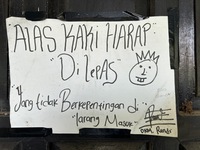 "ALAS KAKI HARAP
"DiLEPAS"
"Yang tidak Berkepentingan di"
"larang Masuk"